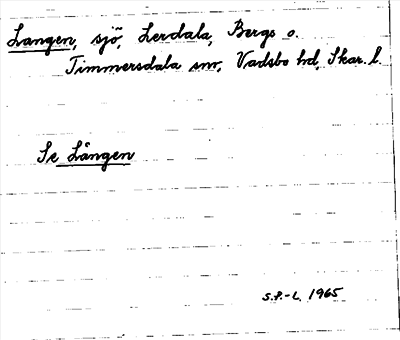 Langen, sjö, Lerdala, Bergs o.
Timmersdala snr, Vadsbo hd, Skar. l.
Se Lången
S.P.-L. 1965